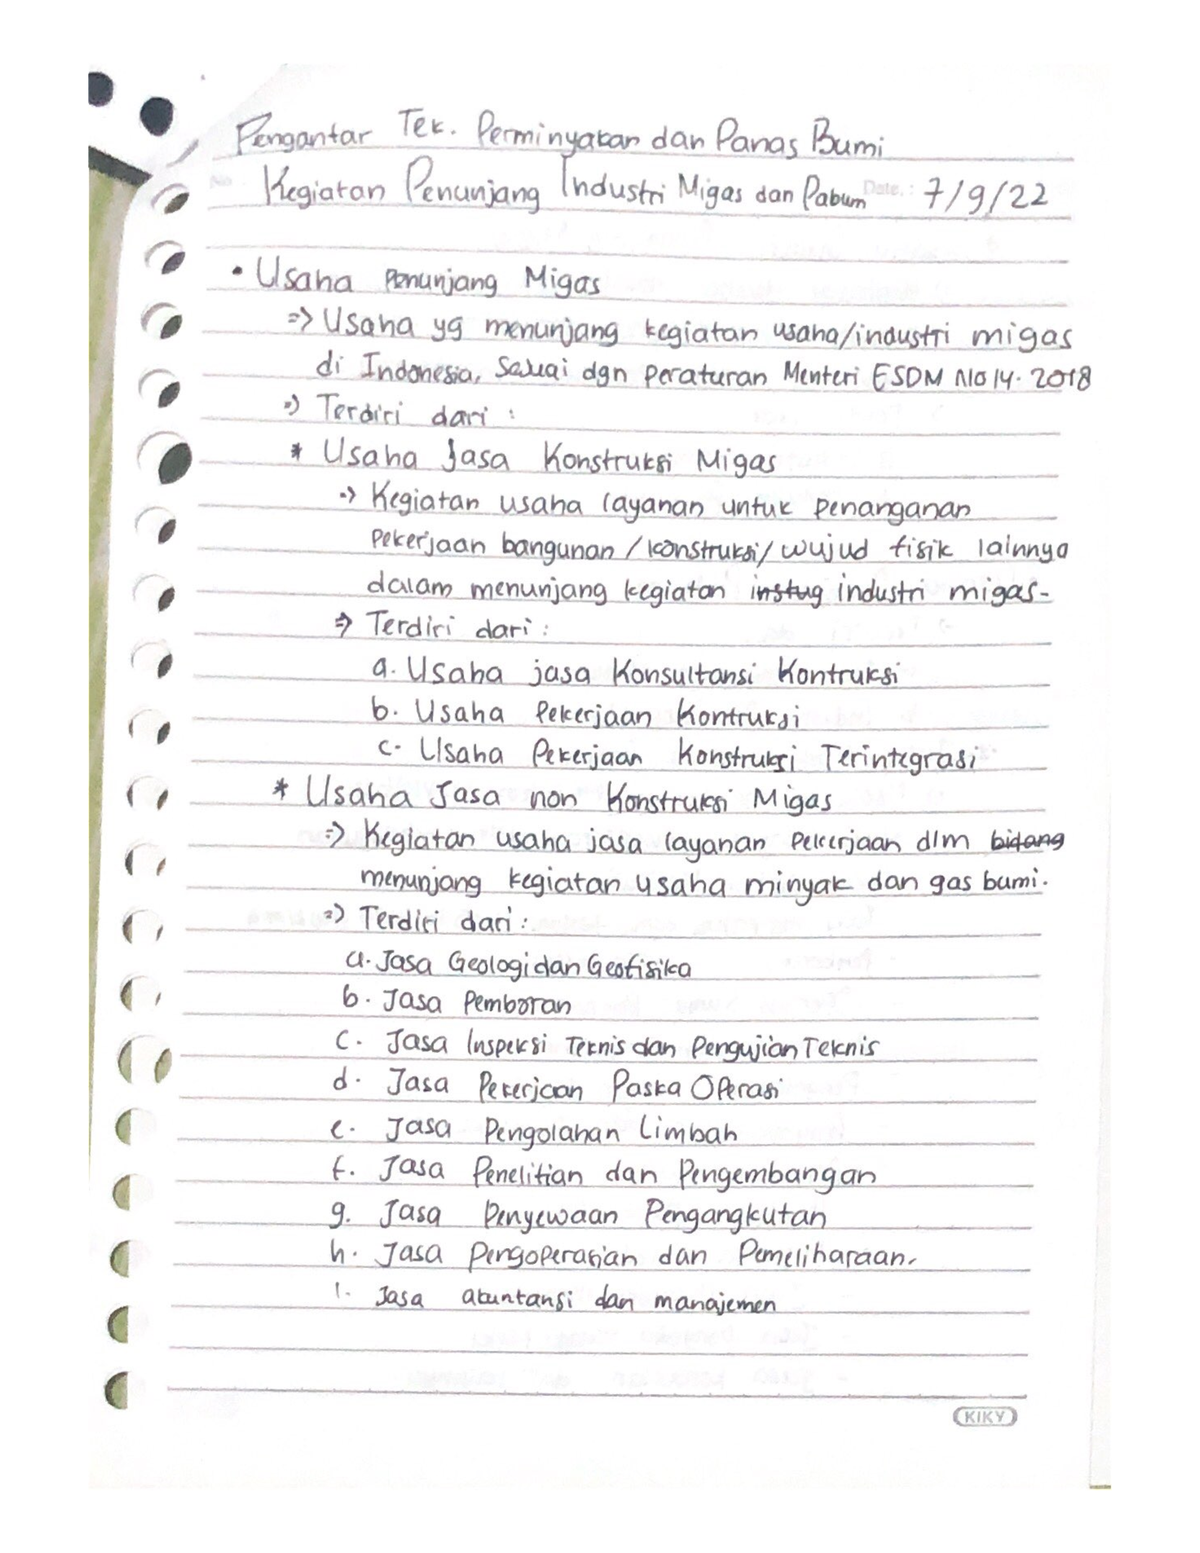 Pengantar Tek. Perminyakan dan Panas Bumi
No. Kegiatan Penunjang Industri Migas dan Pabum Date. : 7/9/22
• Usaha Penunjang Migas
=> Usaha yg menunjang kegiatan usaha/industri migas
di Indonesia, Sesuai dgn Peraturan Menteri ESDM No 14. 2018
=> Terdiri dari :
* Usaha Jasa Konstruksi Migas
=> Kegiatan usaha layanan untuk Penanganan
Pekerjaan bangunan / konstruksi / wujud fisik lainnya
dalam menunjang kegiatan instug industri migas-
=> Terdiri dari :
a. Usaha jasa Konsultansi Kontruksi
b. Usaha Pekerjaan Kontruksi
c. Usaha Pekerjaan Konstruksi Terintegrasi
* Usaha Jasa non Konstruksi Migas
=> Kegiatan usaha jasa layanan Pekerjaan dlm bidang
menunjang kegiatan usaha minyak dan gas bumi.
=> Terdiri dari :
a. Jasa Geologi dan Geofisika
b. Jasa Pemboran
C. Jasa Inspeksi Teknis dan Pengujian Teknis
d. Jasa Pekerjaan Paska Operasi
e. Jasa Pengolahan Limbah
f. Jasa Penelitian dan Pengembangan
g. Jasa Penyewaan Pengangkutan
h. Jasa Pengoperasian dan Pemeliharaan.
I. Jasa akuntansi dan manajemen
KIKY